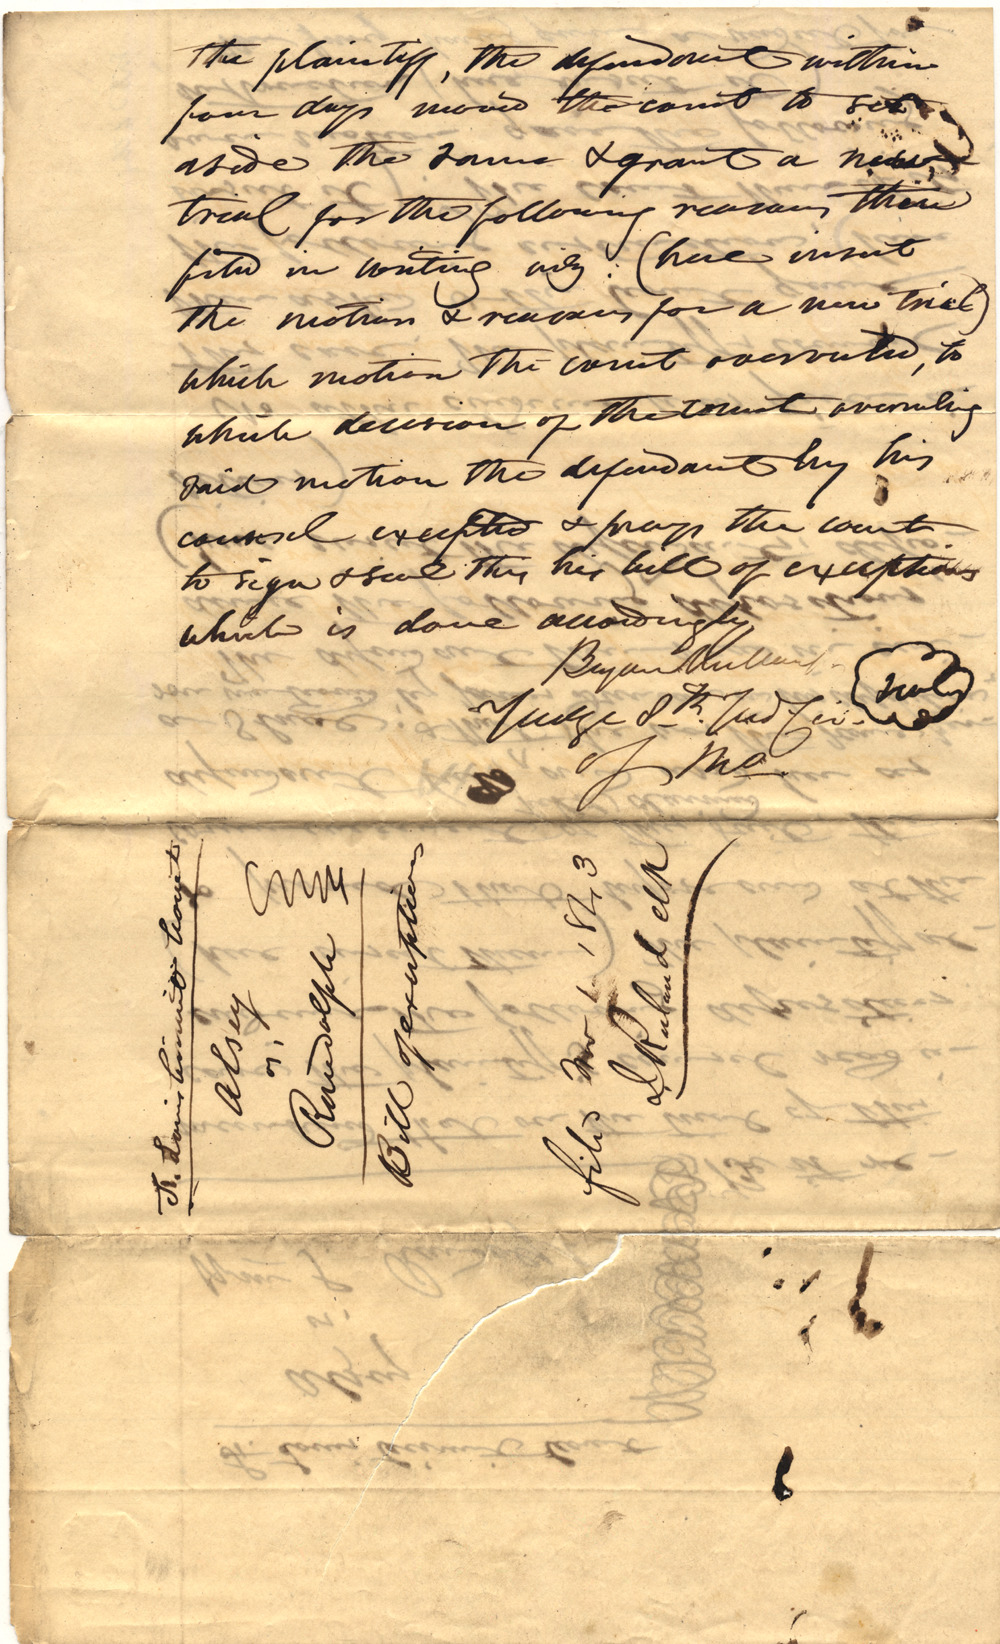 the plaintiff, the defendant within
four days moved the court to set
aside the same & grant a new
trial for the following reasons then
filed in writing viz: (here insert
the motion & reasons for a new trial)
which motion the court overruled, to
which decision of the court overruling
said motion the defendant by his
counsel excepted & prays the court
to sign & seal this his bill of exceptions
which is done accordingly
Bryan Mullanphy
Judge 8th. Jud Cir. seal
of Mo
St. Louis Circuit Court
Alsey
vs.
Randolph
Bill of exceptions
filed 1843
J Ruland clk